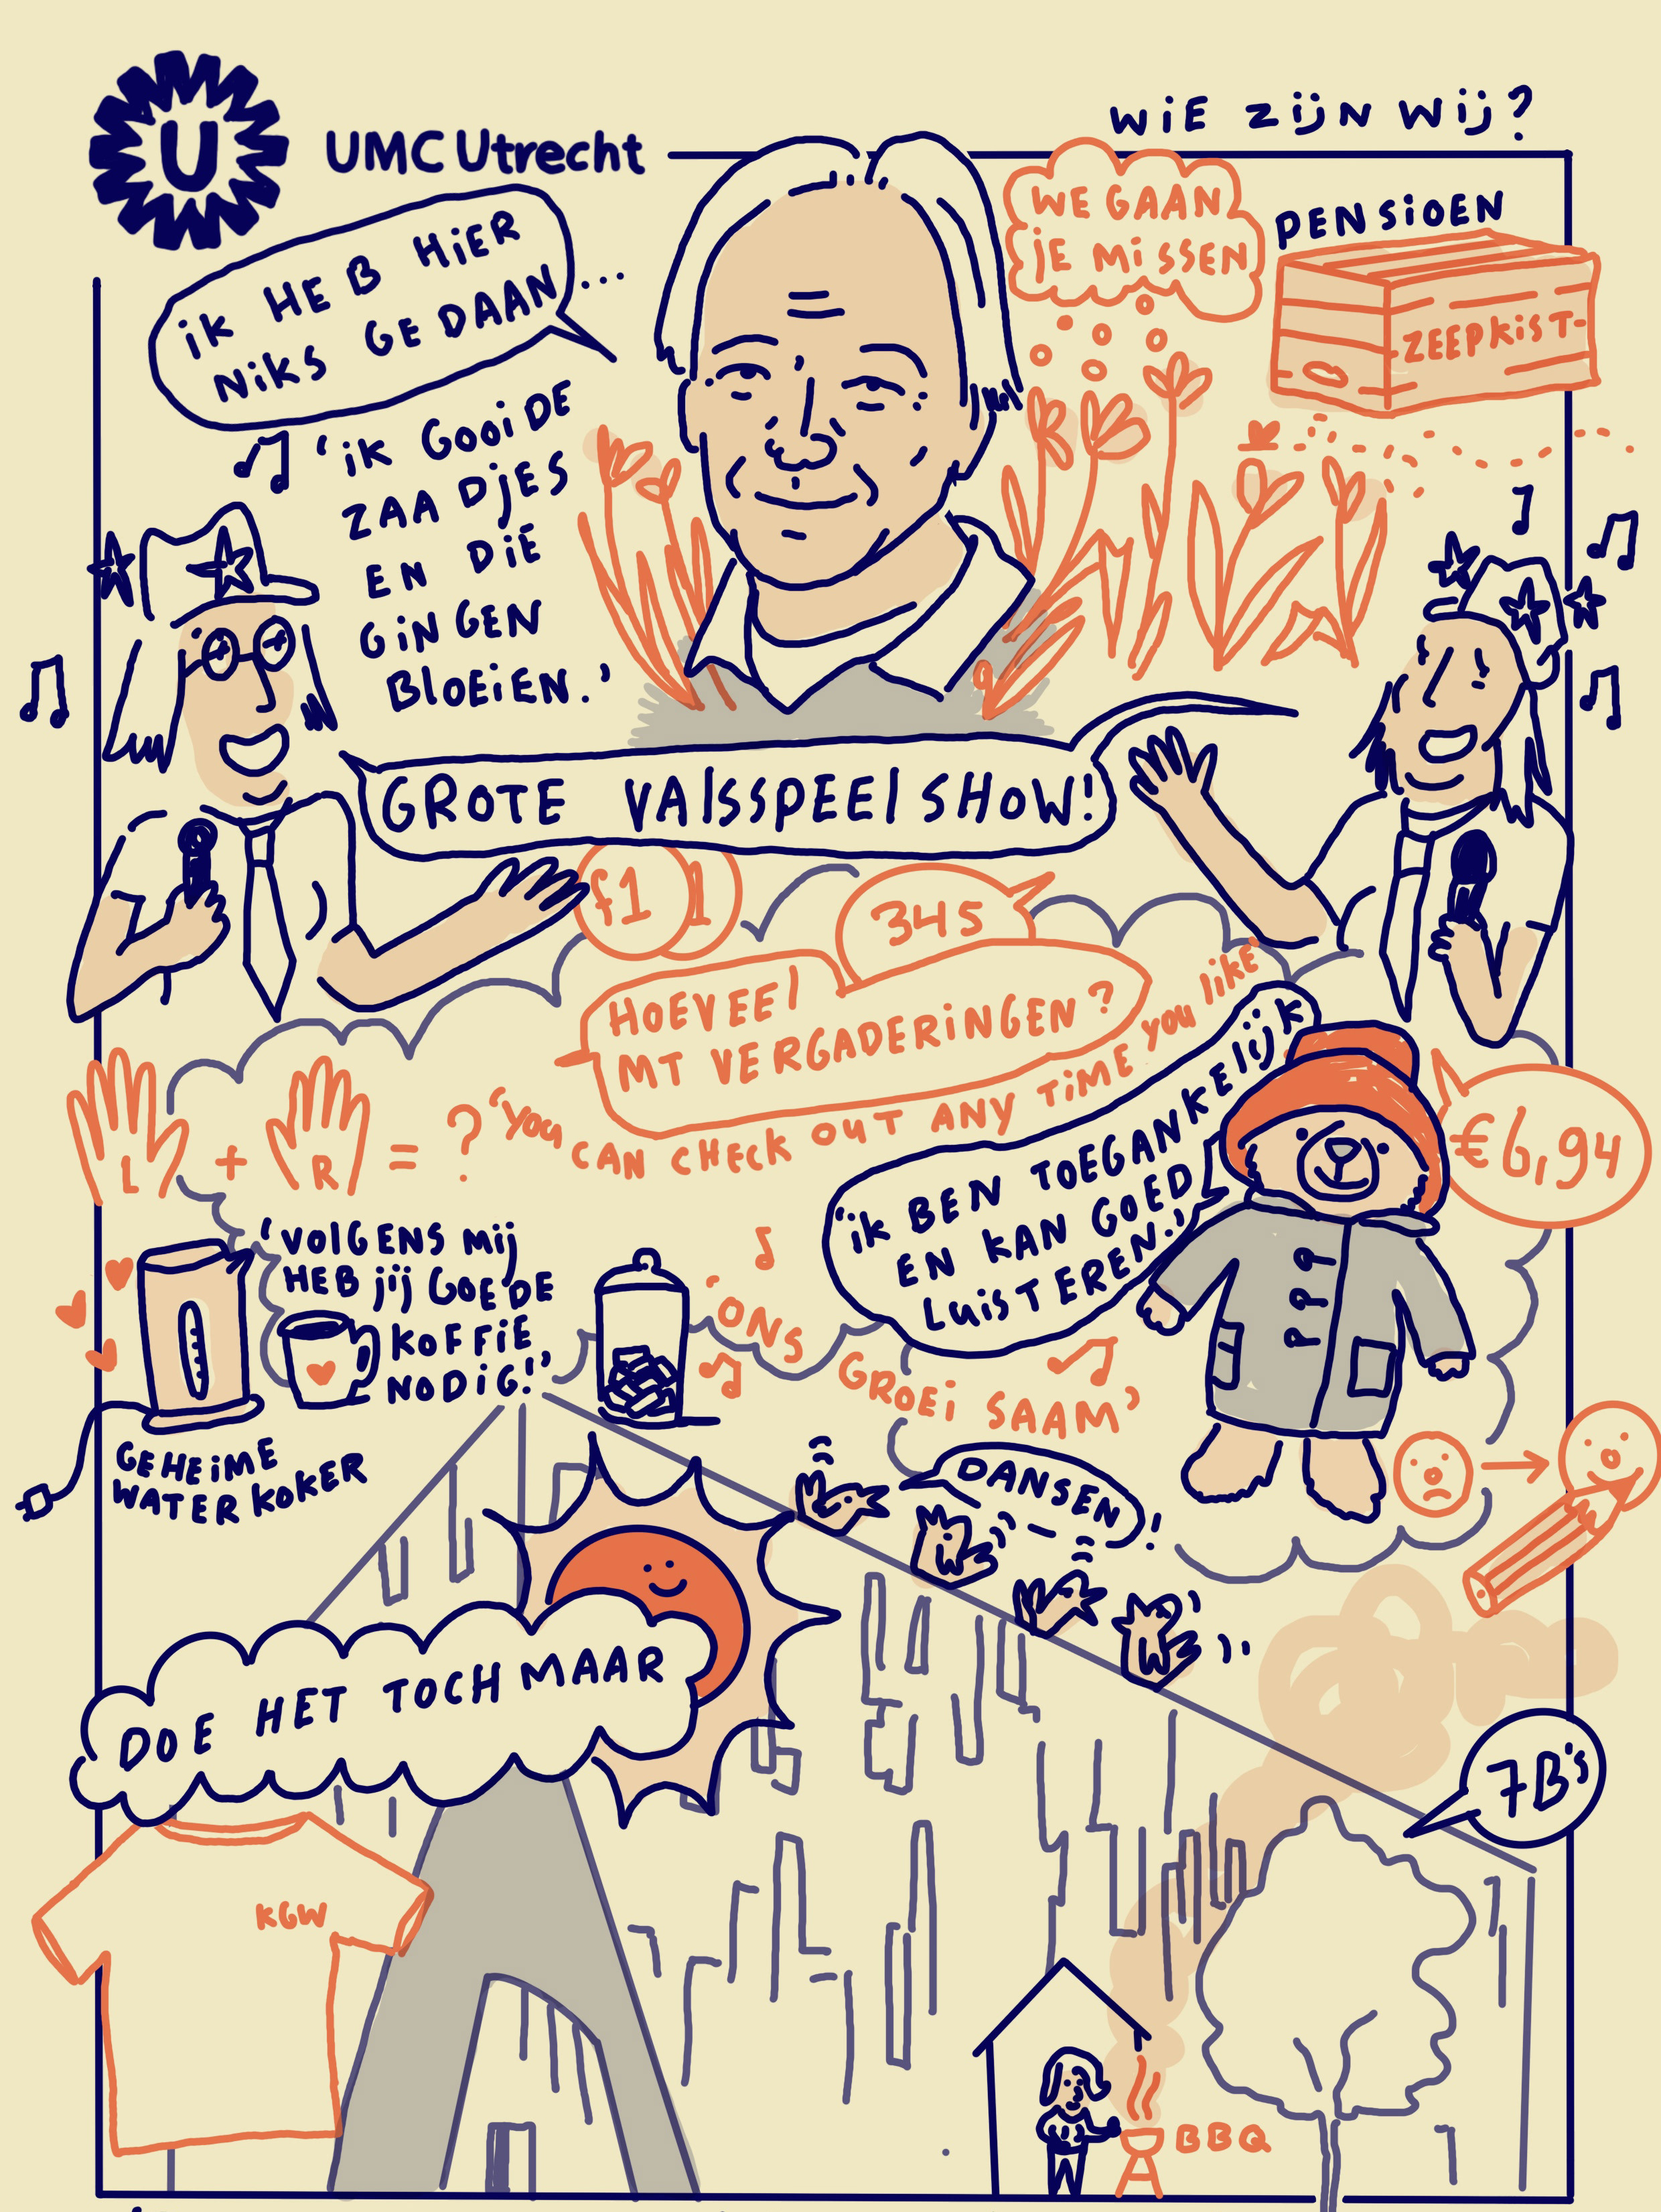 U
UMC Utrecht
WiE ZijN Wij?
iK HEB HiER
NiKS GEDAAN...
WE GAAN
jE MiSSEN
PENSiOEN
ZEEPKiST-
'iK GOOiDE
ZAADjES
EN DiE
GiNGEN
BLOEiEN.'
GROTE VALSSPEELSHOW!
f1 1
345
HOEVEEL
MT VERGADERiNGEN?
'YOU CAN CHECK OUT ANY TiME YOU LiKE
L + R = ?
'iK BEN TOEGANKELijK
EN KAN GOED
LUiSTEREN.'
€6,94
'VOLGENS Mij
HEB jij GOEDE
KOFFiE
NODiG!'
GEHEiME
WATERKOKER
'ONS
GROEi SAAM'
DANSEN!
DOE HET TOCH MAAR
7B's
KGW
BBQ